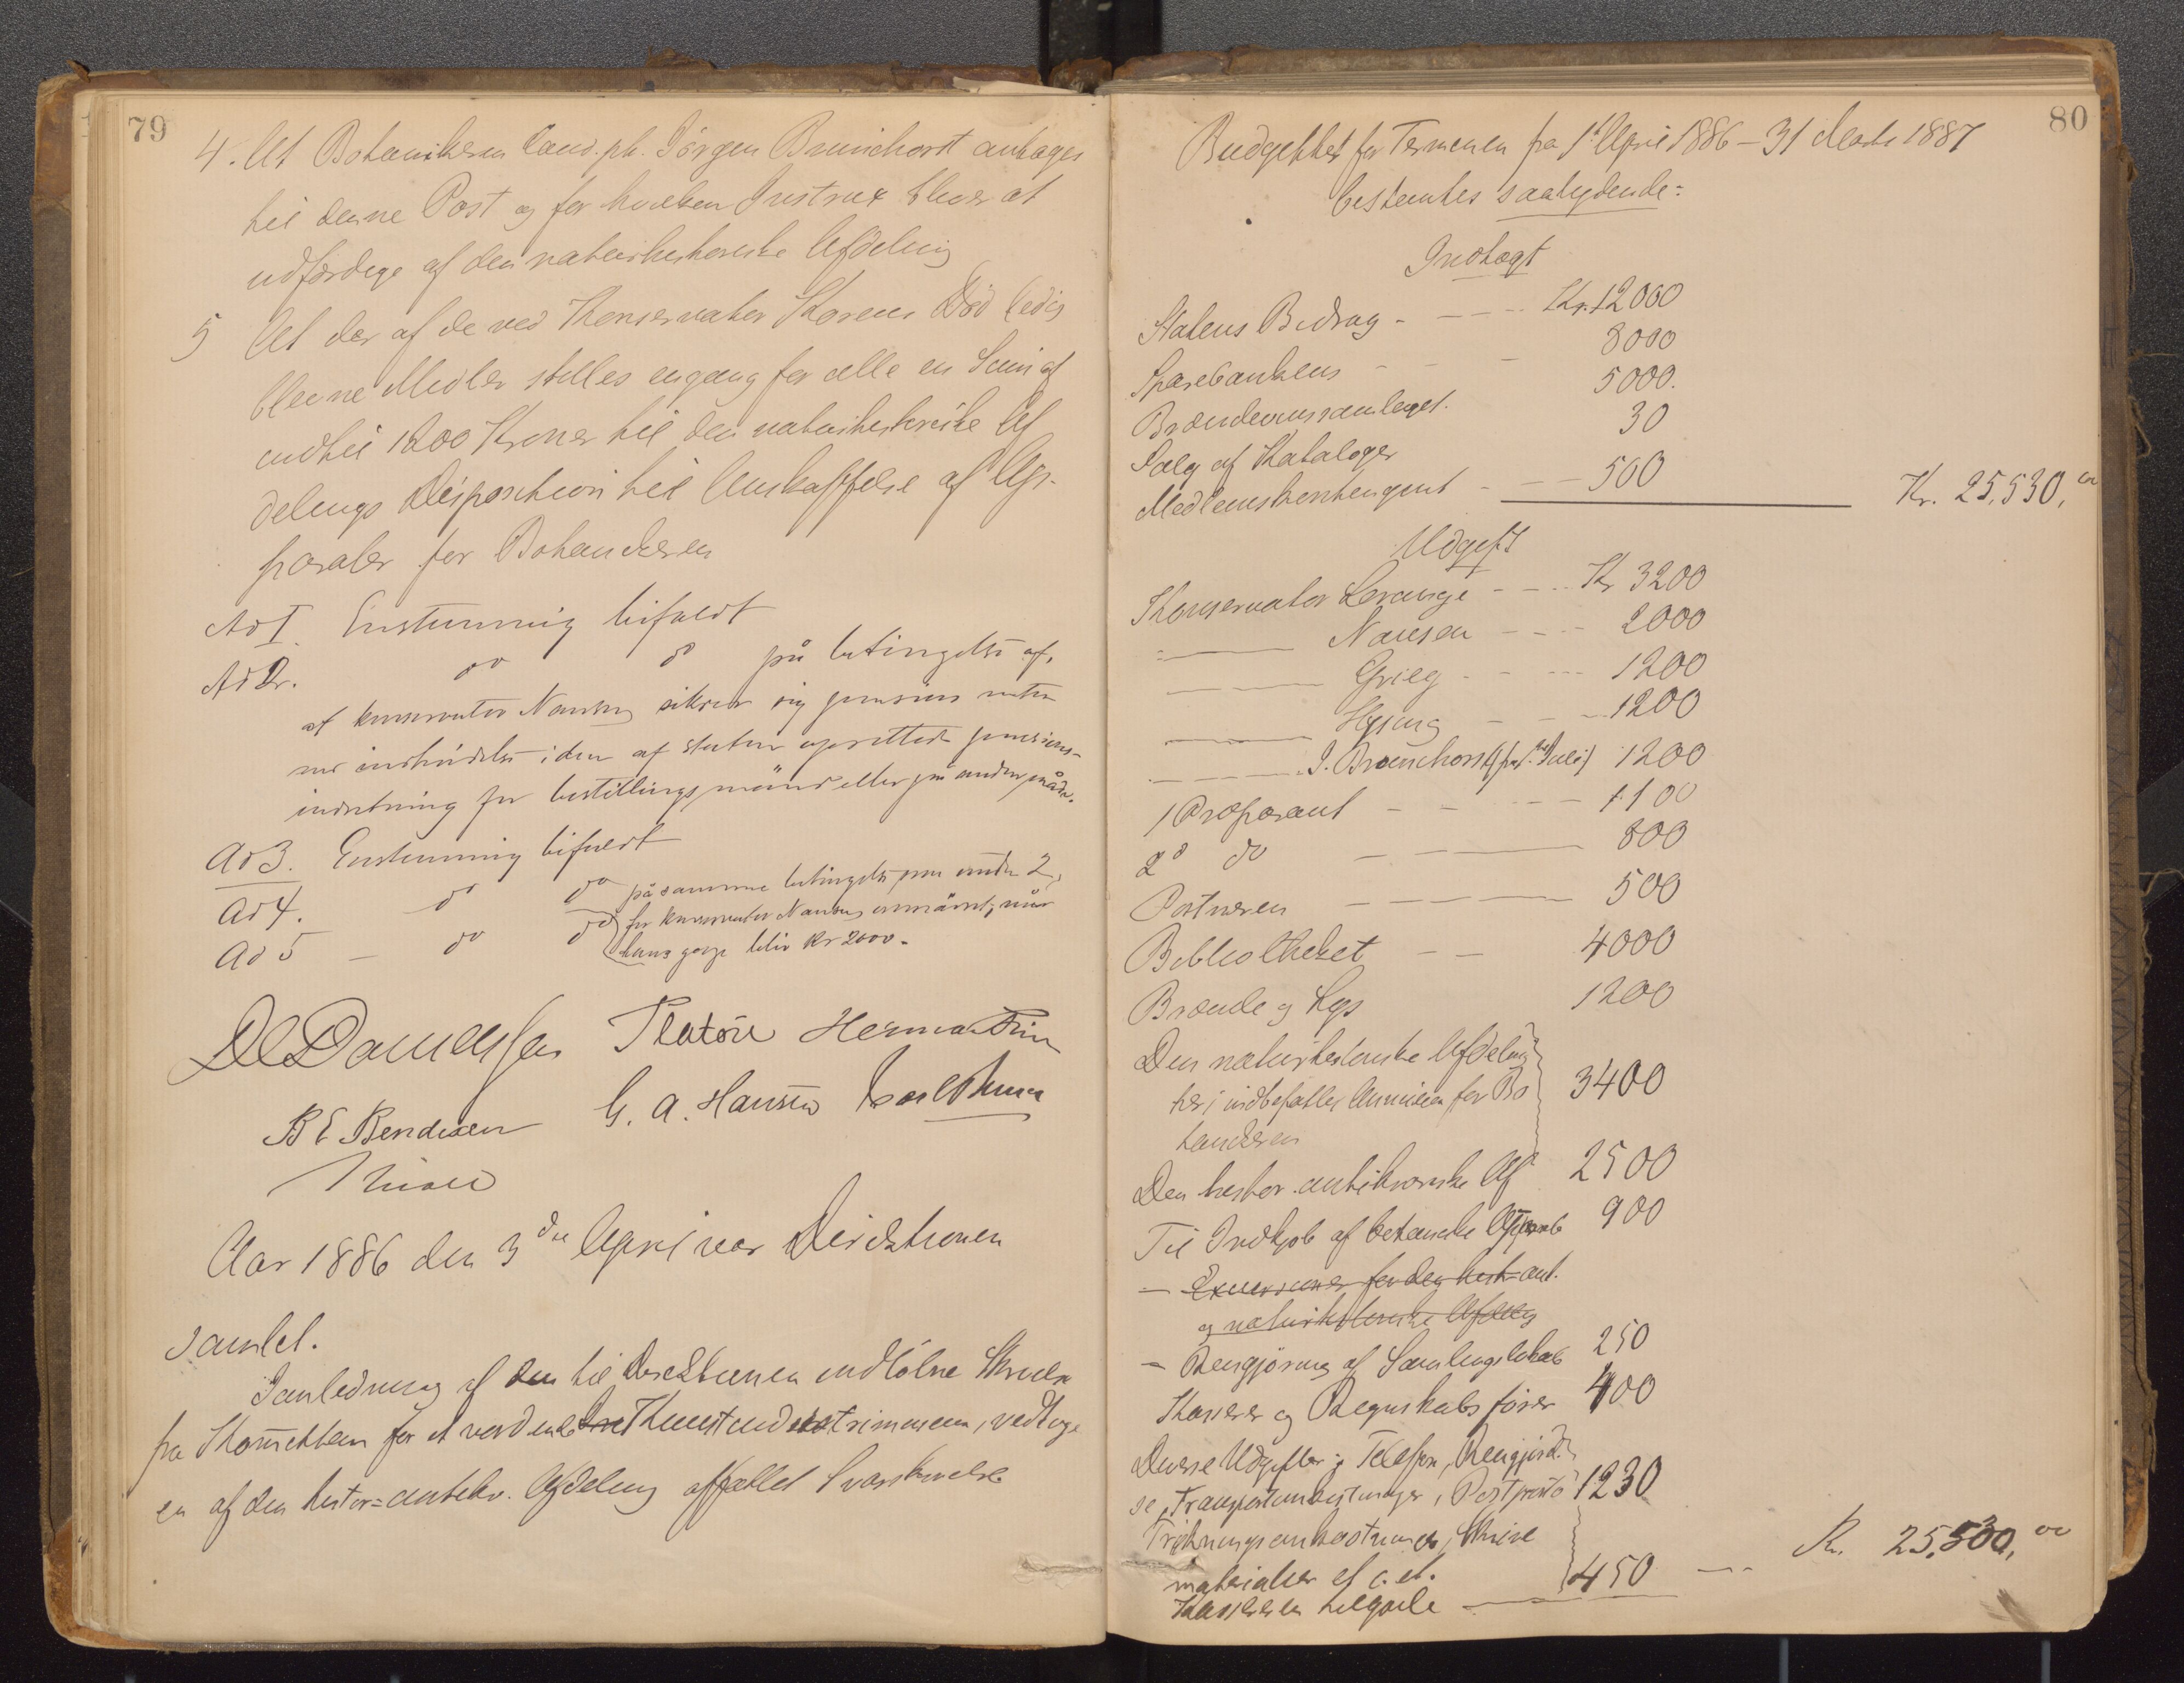 79
4. At Botanikeren Cand. ph. Jörgen Brunchorst antages
til denne Post og for hvilken Instrux bliver at
udfærdige af den naturhistoriske Afdeling
5 At der af de ved Konservator Korens Död ledig
blevne Midler stilles engang for alle en Sum af
indtil 1200 Kroner til den naturhistoriske Af
delings Disposition til Anskaffelse af Ap-
parater for Botanikeren
Ad I. Enstemmig bifaldt
Ad 2. do do på betingelse af,
at konservator Nansen sikrer sig pension enten
ved indtrædelse i den af staten oprettede pensions-
indretning for bestillingsmænd eller på anden måde.
Ad 3. Enstemmig bifaldt
Ad 4. do do på samme betingelse som under 2,
for konservator Nansens, når
Ad 5 – do do hans gage bliv Kr 2000.
DC Danielssen Platou Herman Friele
B E Bendixen G. A. Hansen
Aar 1886 den 3die April var Direktionen
samlet.
I anledning af den til Direktionen indløbne Skrivelse
fra Komiteen for et vordende Kunstindustrimuseum, vedtoge
en af den histor=antikv. Afdeling affattet Svarskrivelse
80
Budgettet for Termenen fra 1st April 1886 – 31 Marts 1887
bestemtes saalydende:
Indtægt
Statens Bidrag - - - - - Kr. 12000
Sparebankens - - - 8000
Brændevinssamlaget. 5000.
Salg af Kataloger 30
Medlemskontengent - - - 500 Kr. 25,530,00
Udgift
Konservator Lorange - - - Kr 3200
Nansen - - - 2000
Grieg - - - 1200
- - - 1200
J. Brunchorst (fra 1ste Juli) 1200
1 Præparant - - - 1100
2d do - 800
Portneren 500
Bibliotheket - - 4000
Brænde og Lys 1200
Den naturhistoriske Afdeling
heri indbefattet for Bo 3400
tanikeren
Den histor. antikvariske Af 2500
Til Indkjøb af botaniske Apparat 900
– Excursioner for den hist-ant.
og naturhistoriske Afdeling
– Rengjøring af Samlingslokale 250
Kasserer og Regnskabsfører 400
Diverse Udgifter: Telefon, Rengjørel
se, Transportomkostninger, Postporto 1230
Trykningsomkostninger, Skrive
materialier et c. et. 450 - - - Kr. 25,530,00
Kassereren tilgode